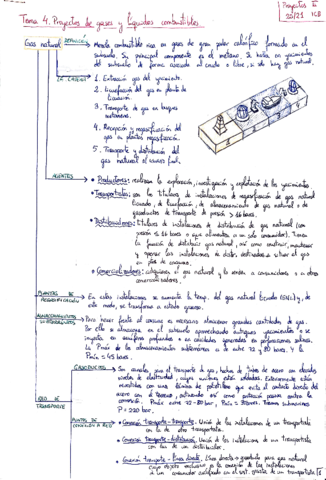 Tema 4. Proyectos de gases y líquidos combustibles
Proyectos II
20/21 ICB
Gas natural
DEFINICIÓN
→ Mezcla combustible rica en gases de gran poder calorífico formado en el
subsuelo. Su principal componente es el metano. Se halla en yacimientos
del subsuelo de forma asociada al crudo o libre, si solo hay gas natural.
LA CADENA
1. Extracción gas del yacimiento.
2. Licuefacción del gas en planta de
licuación
3. Transporte de gas en buques
metaneros.
4. Recepción y regasificación del
gas en plantas regasificación.
5. Transporte y distribución del
gas natural al usuario final.
AGENTES
• Productores: realizan la exploración, investigación y explotación de los yacimientos
• Transportistas: son los titulares de instalaciones de regasificación de gas natural
licuado, de licuefacción, de almacenamiento de gas natural o de
gasoductos de transporte de presión > 16 bares.
• Distribuidores: titulares de instalaciones de distribución de gas natural (con
presión ≤ 16 bares o que alimenten a un solo consumidor). Tienen
la función de distribuir gas natural, así como construir, mantener
y operar las instalaciones de distr. destinadas a situar el gas
en ptos de consumo.
• Comercializadores: adquieren el gas natural y lo venden a consumidores o a otros
comercializadores.
PLANTAS DE
REGASIFICACIÓN
→ En estas instalaciones se aumenta la temp. del gas natural licuado (GNL) y, de
este modo, se transforma a estado gaseoso.
ALMACENAMIENTOS
SUBTERRÁNEOS
→ Para hacer frente al consumo es necesario almacenar grandes cantidades de gas.
Por ello se almacena en el subsuelo aprovechando antiguos yacimientos o se
inyecta en acuíferos profundos o en cavidades generadas en formaciones salinas.
La Pmáx de los almacenamientos subterráneos es de entre 72 y 80 bares y la
Pmín = 45 bares.
RED DE
TRANSPORTE
GASODUCTOS
→ Son canales, para el transporte de gas, hechos de tubos de acero con elevados
niveles de elasticidad, cuyas uniones están soldadas. Exteriormente están
revestidos con una lámina de polietileno que evita el contacto directo del
acero con el terreno, actuando así como protección pasiva contra la
corrosión. Pmáx entre 72-80 bar, Pmín = 30 bares. Tramos submarinos
P = 220 bar.
PUNTOS DE
CONEXIÓN A RED
• Conexión Transporte-transporte. Unión de las instalaciones de un transportista
con la de otro transportista.
• Conexión Transporte-distribución. Unión de las instalaciones de un transportista
con las de un distribuidor.
• Conexión transporte-línea directa. Línea directa = gasoducto para gas natural
cuyo objeto exclusivo es la conexión de las instalaciones
de un consumidor cualificado en el sist. gasista con un transportista